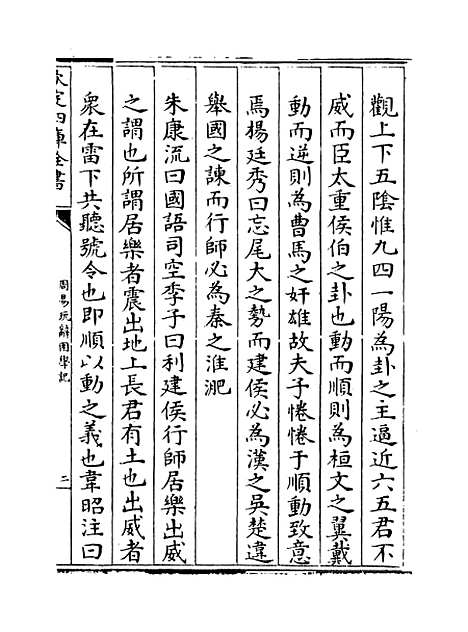 觀上下五陰惟九四一陽為卦之主逼近六五君不
威而臣太重侯伯之卦也動而順則為桓文之翼戴
動而逆則為曹馬之奸雄故夫子惓惓于順動致意
焉楊廷秀曰忘尾大之勢而建侯必為漢之吳楚違
舉國之諫而行師必為秦之淮淝
朱康流曰國語司空季子曰利建侯行師居樂出威
之謂也所謂居樂者震出地上長君有土也出威者
衆在雷下共聽號令也即順以動之義也韋昭注曰
欽定四庫全書
周易玩辭困學記
二